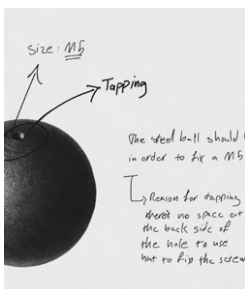 Size: M5
Tapping
The steel ball should
in order to fix a M5
Reason for tapping
there's no space at
the back side of
the hole to use
nut to fix the screw